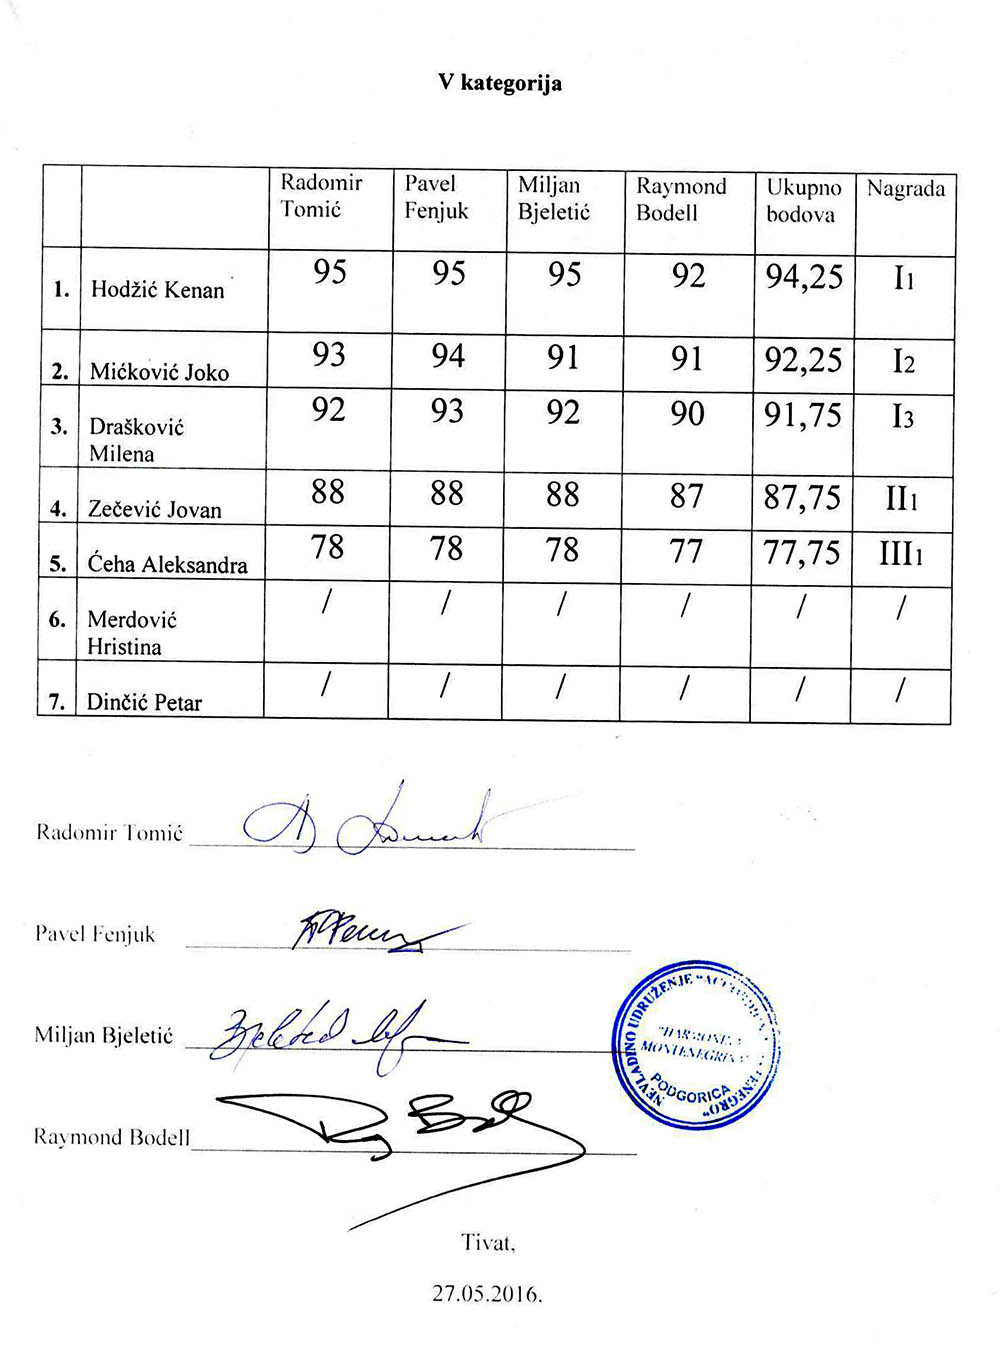 V kategorija
Radomir Tomić Pavel Fenjuk Miljan Bjeletić Raymond Bodell Ukupno bodova Nagrada
1. Hodžić Kenan 95 95 95 92 94,25 I1
2. Mićković Joko 93 94 91 91 92,25 I2
3. Drašković Milena 92 93 92 90 91,75 I3
4. Zečević Jovan 88 88 88 87 87,75 II1
5. Ćeha Aleksandra 78 78 78 77 77,75 III1
6. Merdović Hristina / / / / / /
7. Dinčić Petar / / / / / /
Radomir Tomić
Pavel Fenjuk
Miljan Bjeletić
Raymond Bodell
NEVLADINO UDRUŽENJE
PODGORICA
Tivat,
27.05.2016.